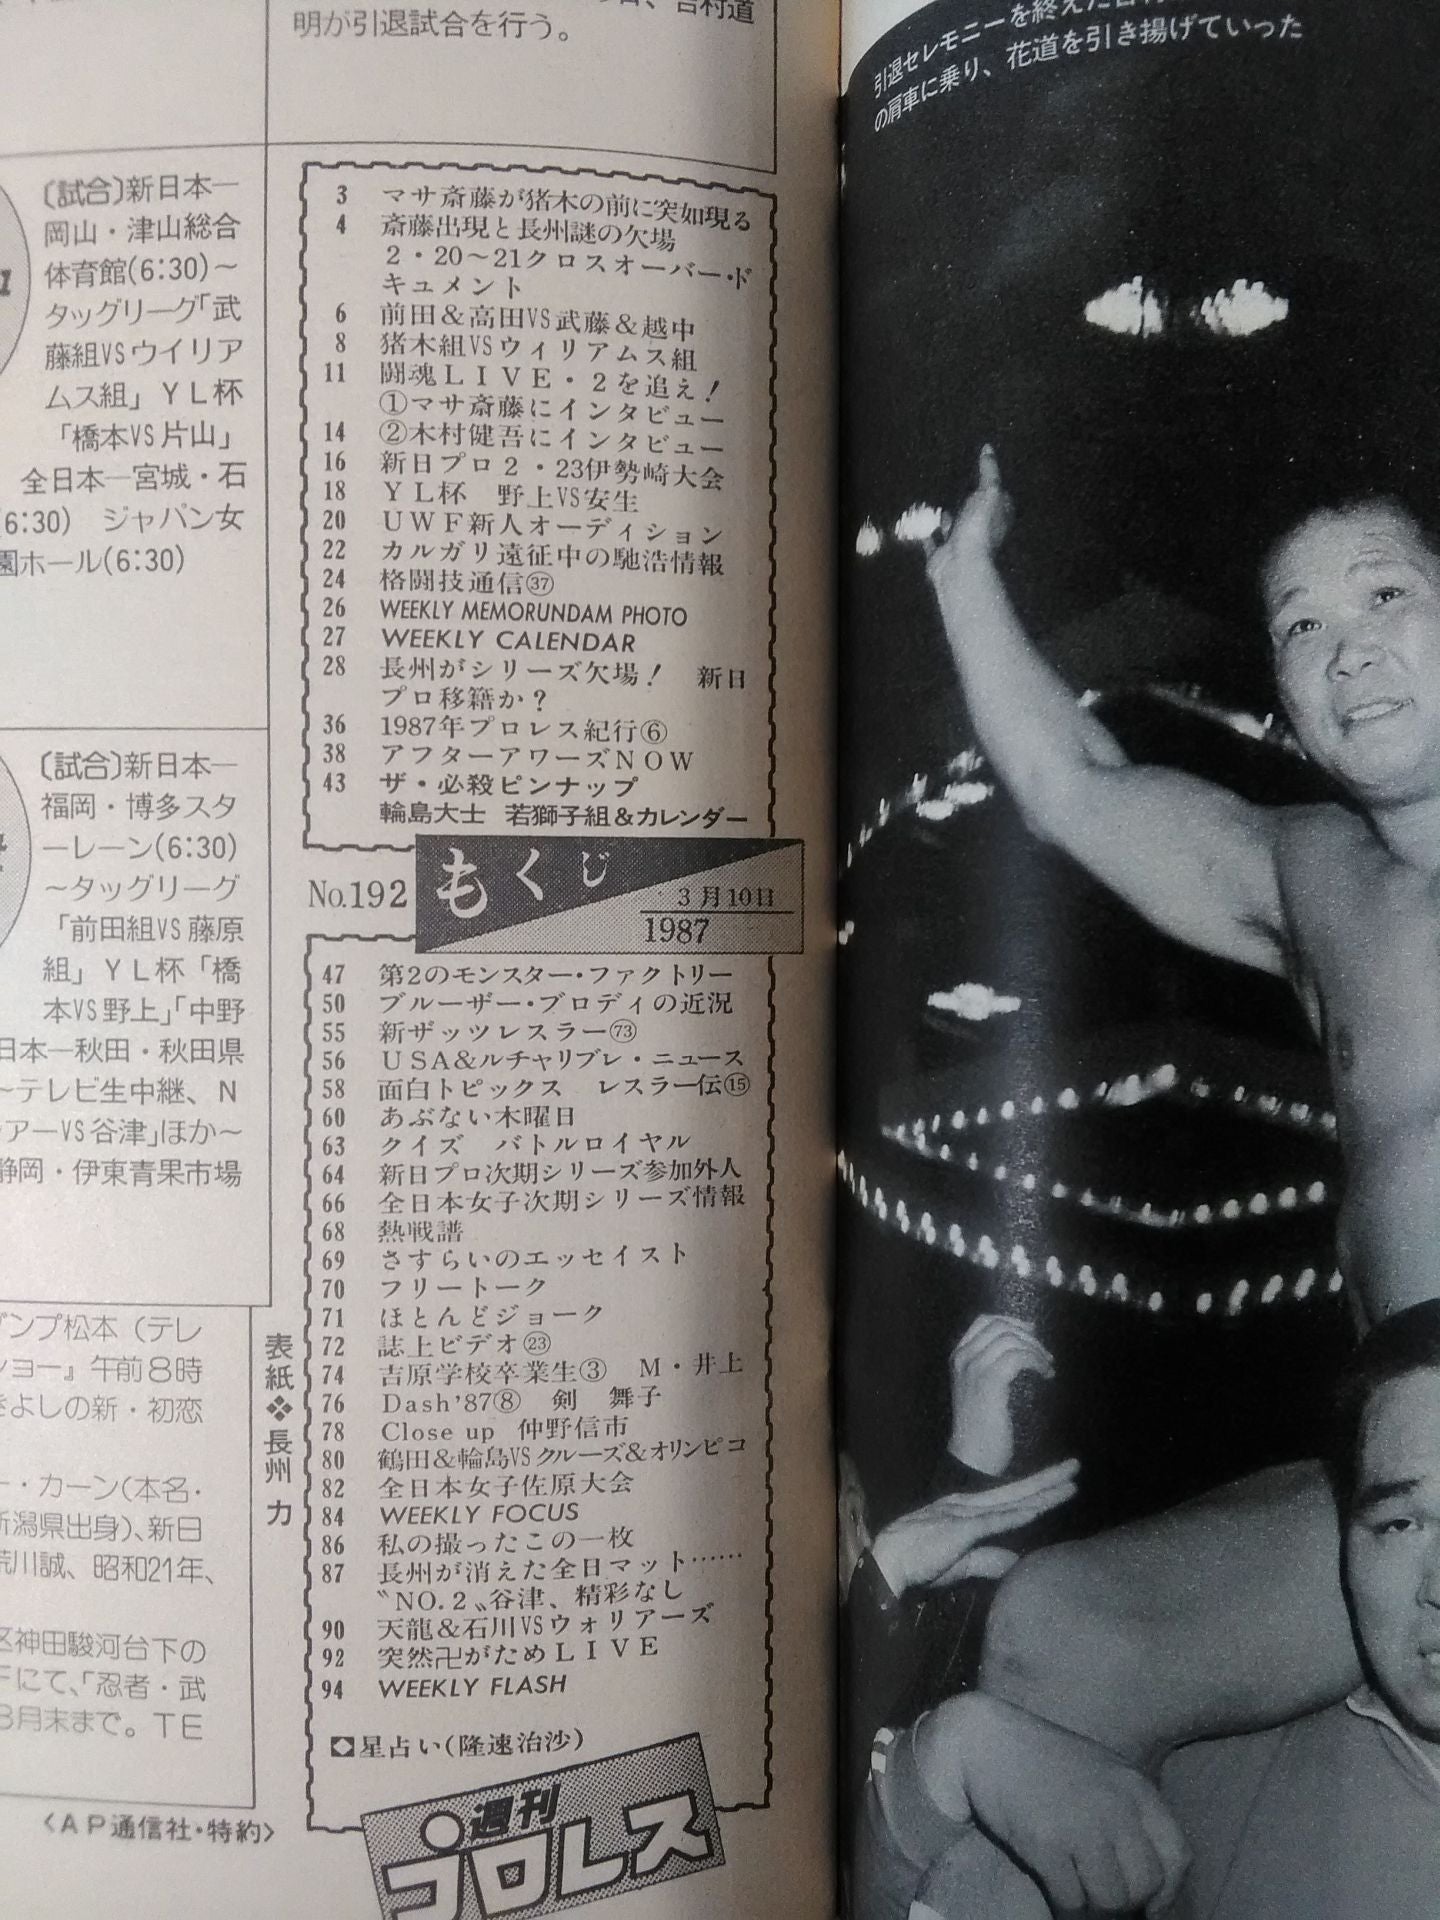 、吉村道
明が引退試合を行う。
〔試合〕新日本―
岡山・津山総合
体育館(6:30)～
タッグリーグ「武
藤組VSウイリア
ムス組」ＹＬ杯
「橋本VS片山」
全日本―宮城・石
6:30) ジャパン女
園ホール(6:30)
〔試合〕新日本―
福岡・博多スタ
ーレーン(6:30)
～タッグリーグ
「前田組VS藤原
組」ＹＬ杯「橋
本VS野上」「中野
日本―秋田・秋田県
～テレビ生中継、Ｎ
アーVS谷津」ほか～
静岡・伊東青果市場
ダンプ松本（テレ
ショー』午前8時
きよしの新・初恋
ー・カーン(本名・
新潟県出身)、新日
荒川誠、昭和21年、
区神田駿河台下の
Fにて、「忍者・武
3月末まで。ＴＥ
〈ＡＰ通信社・特約〉
表紙❖長州 力
3 マサ斎藤が猪木の前に突如現る
4 斎藤出現と長州謎の欠場
2・20～21クロスオーバー・ド
キュメント
6 前田＆高田VS武藤＆越中
8 猪木組VSウィリアムス組
11 闘魂ＬＩＶＥ・2を追え！
①マサ斎藤にインタビュー
14 ②木村健吾にインタビュー
16 新日プロ2・23伊勢崎大会
18 ＹＬ杯 野上VS安生
20 ＵＷＦ新人オーディション
22 カルガリ遠征中の馳浩情報
24 格闘技通信㊲
26 WEEKLY MEMORUNDAM PHOTO
27 WEEKLY CALENDAR
28 長州がシリーズ欠場！ 新日
プロ移籍か？
36 1987年プロレス紀行⑥
38 アフターアワーズＮＯＷ
43 ザ・必殺ピンナップ
輪島大士 若獅子組＆カレンダー
No.192 もくじ 3月10日
1987
47 第2のモンスター・ファクトリー
50 ブルーザー・ブロディの近況
55 新ザッツレスラー(73)
56 ＵＳＡ＆ルチャリブレ・ニュース
58 面白トピックス レスラー伝⑮
60 あぶない木曜日
63 クイズ バトルロイヤル
64 新日プロ次期シリーズ参加外人
66 全日本女子次期シリーズ情報
68 熱戦譜
69 さすらいのエッセイスト
70 フリートーク
71 ほとんどジョーク
72 誌上ビデオ㉓
74 吉原学校卒業生③ Ｍ・井上
76 Dash'87⑧ 剣 舞子
78 Close up 仲野信市
80 鶴田＆輪島VSクルーズ＆オリンピコ
82 全日本女子佐原大会
84 WEEKLY FOCUS
86 私の撮ったこの一枚
87 長州が消えた全日マット……
〝NO.2〟谷津、精彩なし
90 天龍＆石川VSウォリアーズ
92 突然卍がためＬＩＶＥ
94 WEEKLY FLASH
◆星占い(隆速治沙)
週刊
プロレス
引退セレモニーを終えた吉村
の肩車に乗り、花道を引き揚げていった